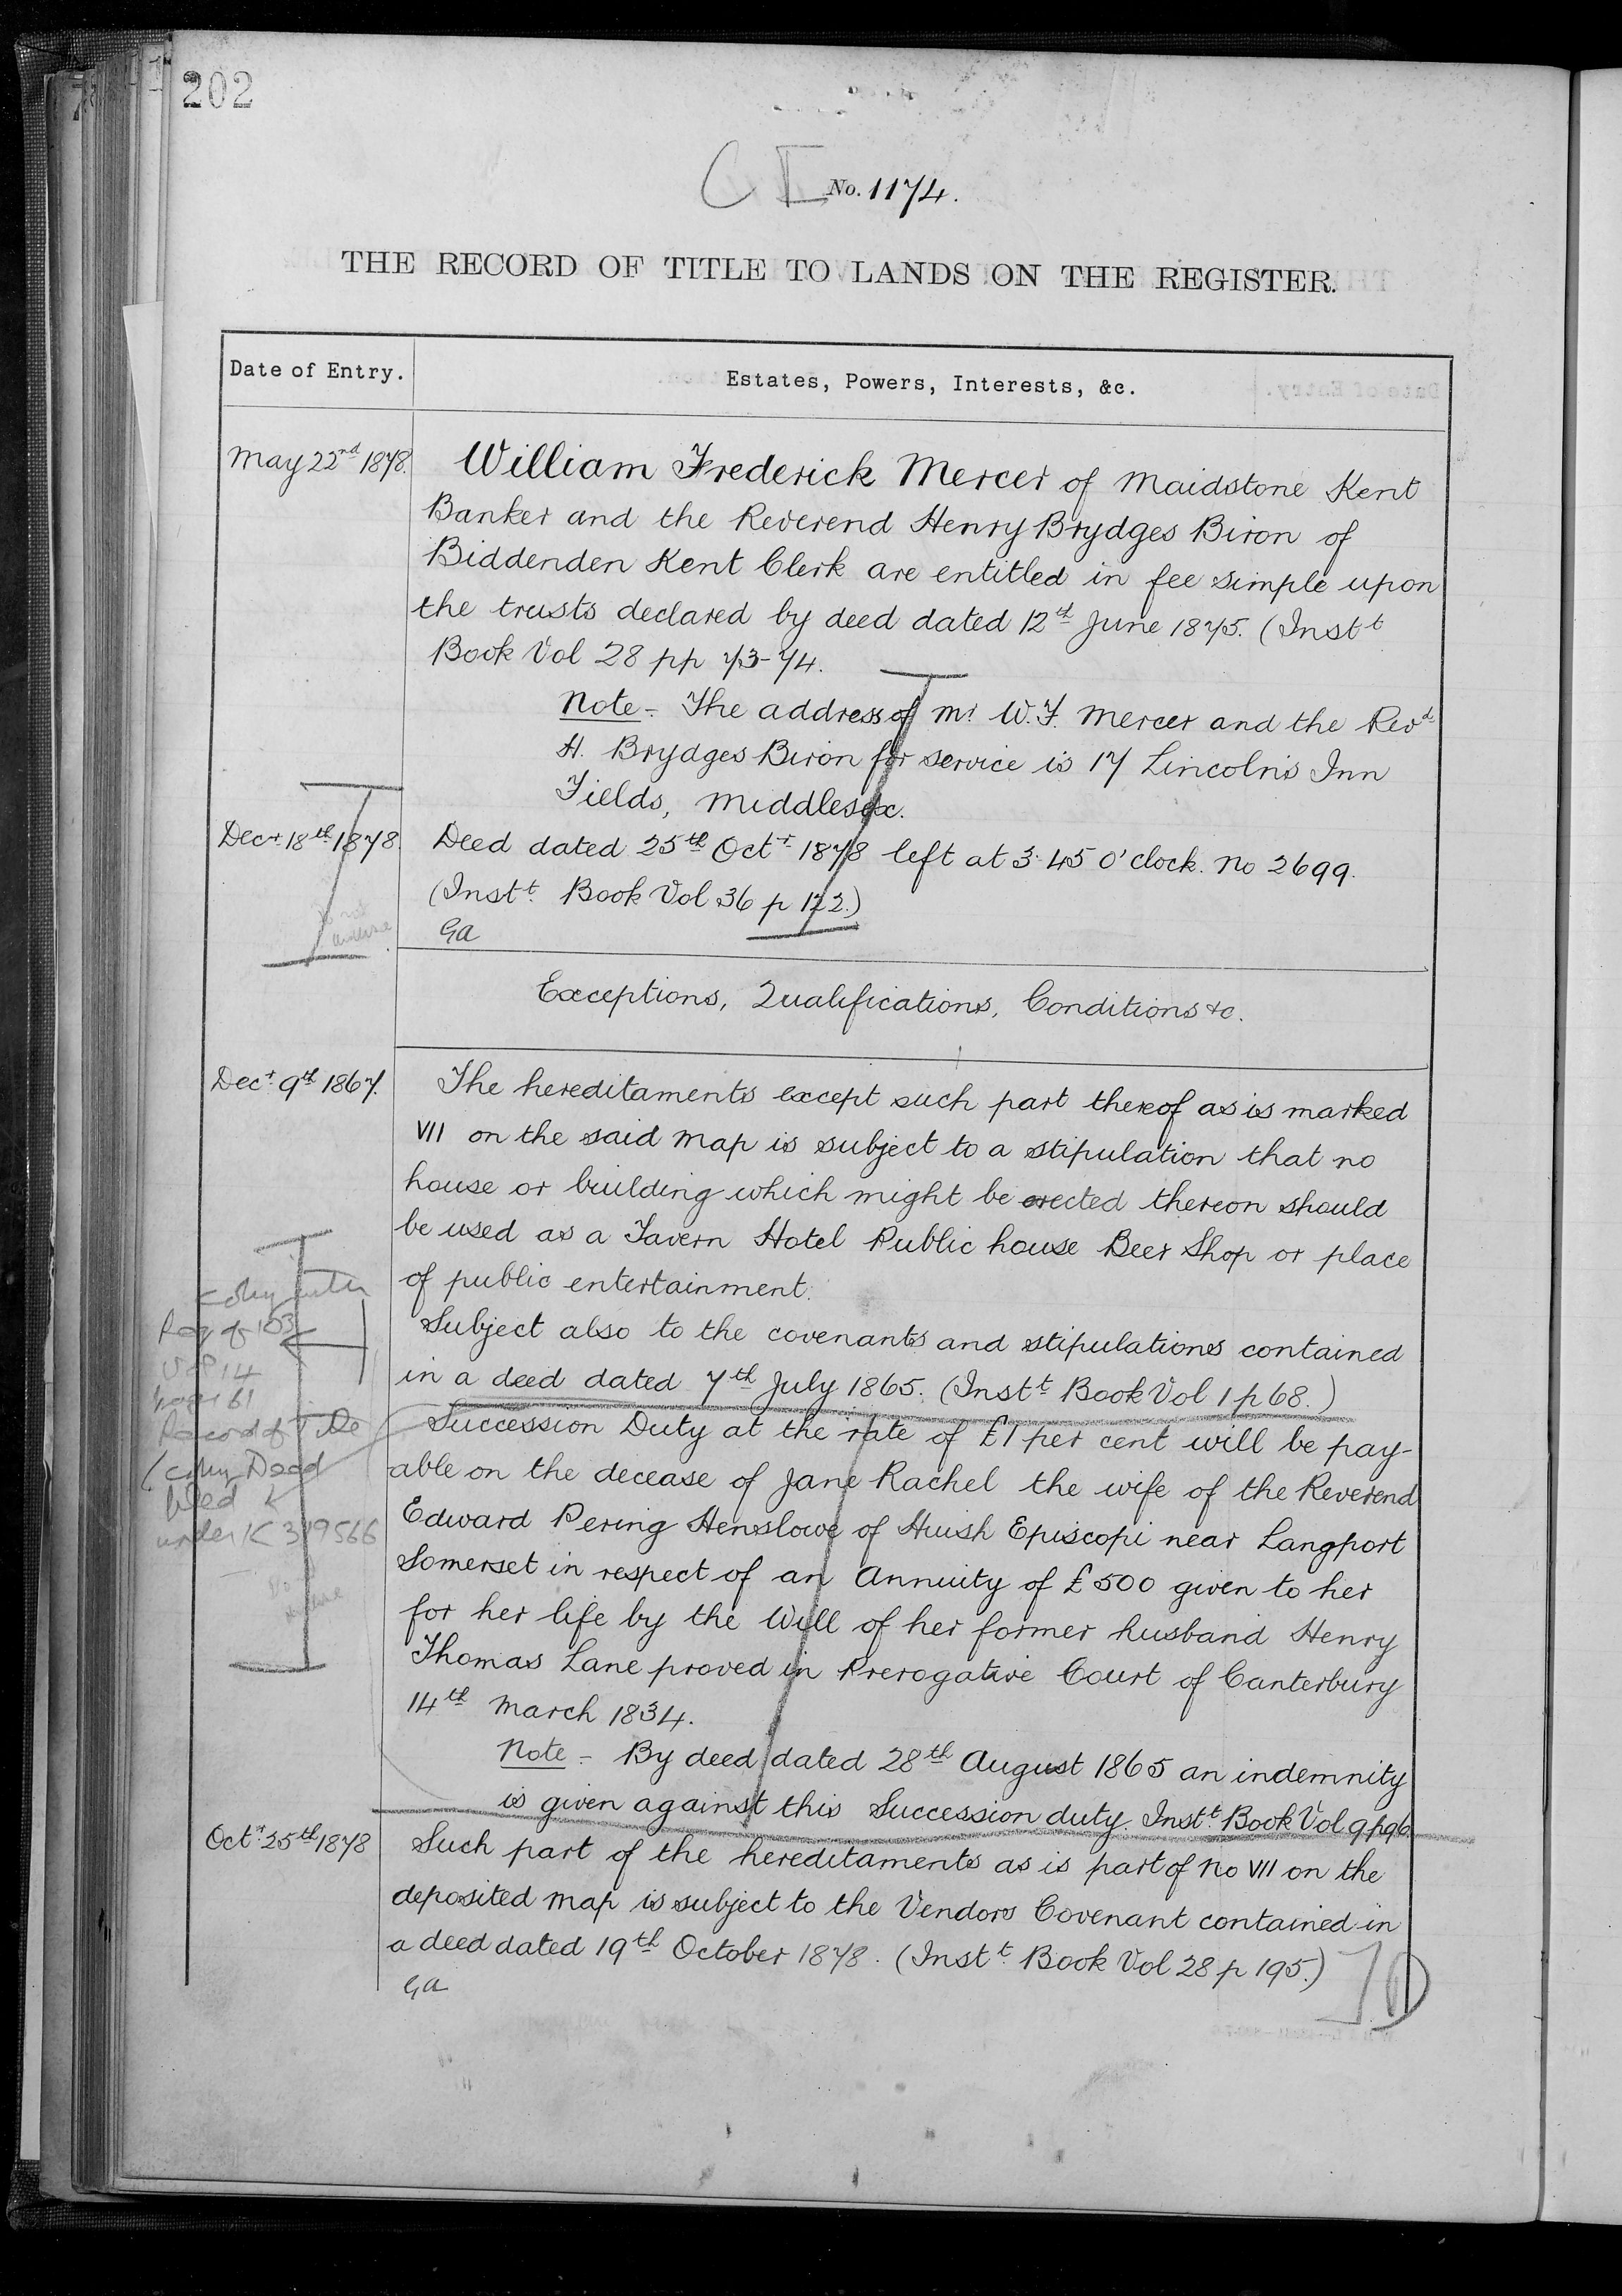 202
C I No. 1174.
THE RECORD OF TITLE TO LANDS ON THE REGISTER.
Date of Entry.
Estates, Powers, Interests, &c.
May 22nd 1878.
William Frederick Mercer of Maidstone Kent
Banker and the Reverend Henry Brydges Biron of
Biddenden Kent Clerk are entitled in fee simple upon
the trusts declared by deed dated 12th June 1875. (Instt
Book Vol 28 pp 73-74.
Note - The address of Mr W. F. Mercer and the Revd
H. Brydges Biron for service is 17 Lincoln's Inn
Fields, Middlesex.
Decr. 18th 1878.
Deed dated 25th Octr 1878 left at 3.45 O'clock. No 2699.
(Instt. Book Vol 36 p 122.)
GA
Exceptions, Qualifications, Conditions &c.
Decr. 9th 1867.
The hereditaments except such part thereof as is marked
VII on the said map is subject to a stipulation that no
house or building which might be erected thereon should
be used as a Tavern Hotel Public house Beer Shop or place
of public entertainment.
Subject also to the covenants and stipulations contained
in a deed dated 7th July 1865. (Instt Book Vol 1 p 68.)
Succession Duty at the rate of £1 per cent will be pay-
able on the decease of Jane Rachel the wife of the Reverend
Edward Pering Henslowe of Huish Episcopi near Langport
Somerset in respect of an Annuity of £500 given to her
for her life by the Will of her former husband Henry
Thomas Lane proved in Prerogative Court of Canterbury
14th March 1834.
Note - By deed dated 28th August 1865 an indemnity
is given against this Succession duty. Instt. Book Vol 9 p 96
Record of Title
under K 319566
Octr. 25th 1878
Such part of the hereditaments as is part of No VII on the
deposited map is subject to the Vendors Covenant contained in
a deed dated 19th October 1878. (Instt. Book Vol 28 p 195.)
GA